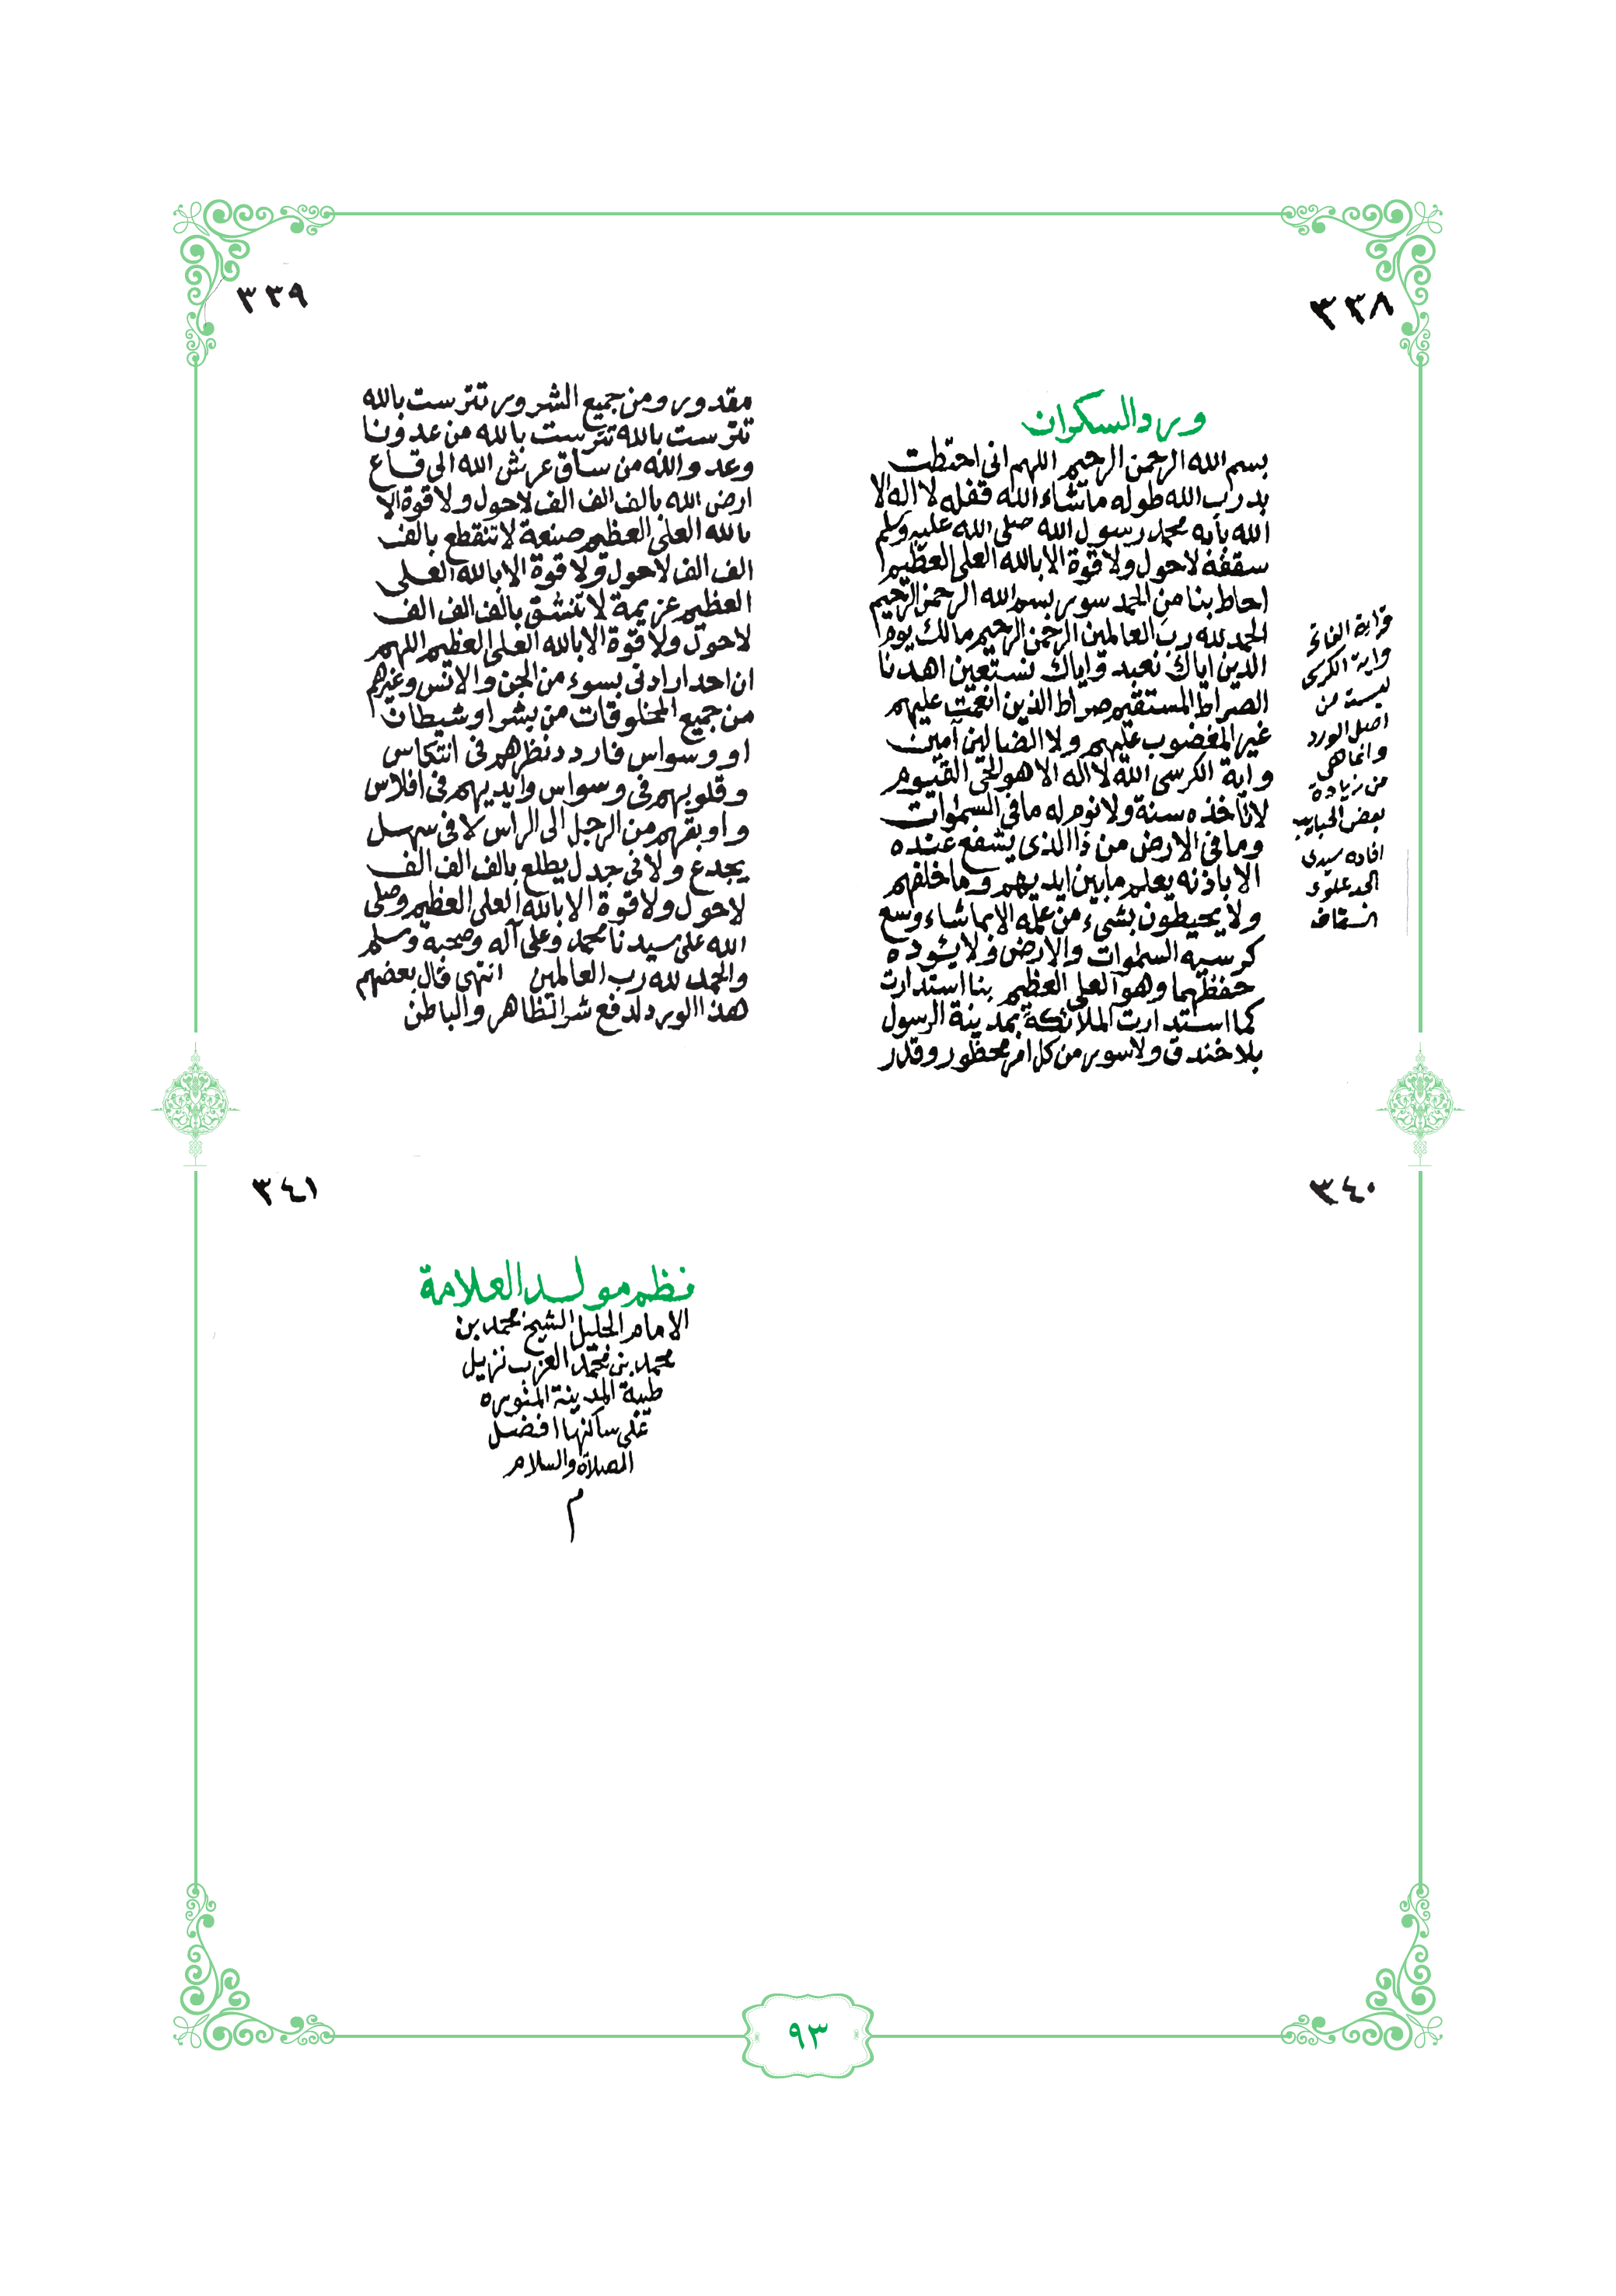 ٣٣٨
ورد السكران
بسم الله الرحمن الرحيم اللهم اني احتطت
بدرب الله طوله ماشاء الله قفله لا اله الا
الله بابه محمد رسول الله صلى الله عليه وسلم
سقفه لاحول ولا قوة الا بالله العلي العظيم
احاط بنا من الحمد سور بسم الله الرحمن الرحيم
الحمد لله رب العالمين الرحمن الرحيم مالك يوم
الدين اياك نعبد واياك نستعين اهدنا
الصراط المستقيم صراط الذين انعمت عليهم
غير المغضوب عليهم ولا الضالين آمين
واية الكرسى الله لا اله الا هو الحي القيوم
لا تاخذه سنة ولا نوم له مافي السموات
ومافي الارض من ذا الذى يشفع عنده
الا باذنه يعلم مابين ايديهم وما خلفهم
ولا يحيطون بشيء من علمه الا بما شاء وسع
كرسيه السموات والارض ولا يئوده
حفظهما وهو العلي العظيم بنا استدارت
كما استدارت الملائكة بمدينة الرسول
بلا خندق ولا سور من كل امر محظور وقدر
قراية الفاتحة
واية الكرسى
ليست من
اصل الورد
وانما هي
من زيادة
بعض الحبايب
افاده سيدى
احمد علوى
السقاف
٣٣٩
مقدور ومن جميع الشرور تترست بالله
تترست بالله تترست بالله من عدونا
وعدو الله من ساق عرش الله الى قاع
ارض الله بالف الف الف لاحول ولا قوة الا
بالله العلى العظيم صنعة لا تنقطع بالف
الف الف لاحول ولا قوة الا بالله العلى
العظيم عزيمة لا تنشق بالف الف الف
لاحول ولا قوة الا بالله العلى العظيم اللهم
ان احد ارادنى بسوء من الجن والانس وغيرهم
من جميع المخلوقات من بشر او شيطان
او وسواس فاردد نظرهم فى انتكاس
وقلوبهم فى وسواس وايديهم فى افلاس
واوبقهم من الرجل الى الراس لا فى سهل
يجدع ولا فى جبل يطلع بالف الف الف
لاحول ولا قوة الا بالله العلى العظيم وصلى
الله على سيدنا محمد وعلى آله وصحبه وسلم
والحمد لله رب العالمين انتهى قال بعضهم
هذا الورد لدفع شر الظاهر والباطن
٣٤٠
٣٤١
نظم مولد العلامة
الامام الجليل الشيخ محمد بن
محمد بن محمد العزب نزيل
طيبة المدينة المنوره
على ساكنها افضل
الصلاة والسلام
م
٩٣